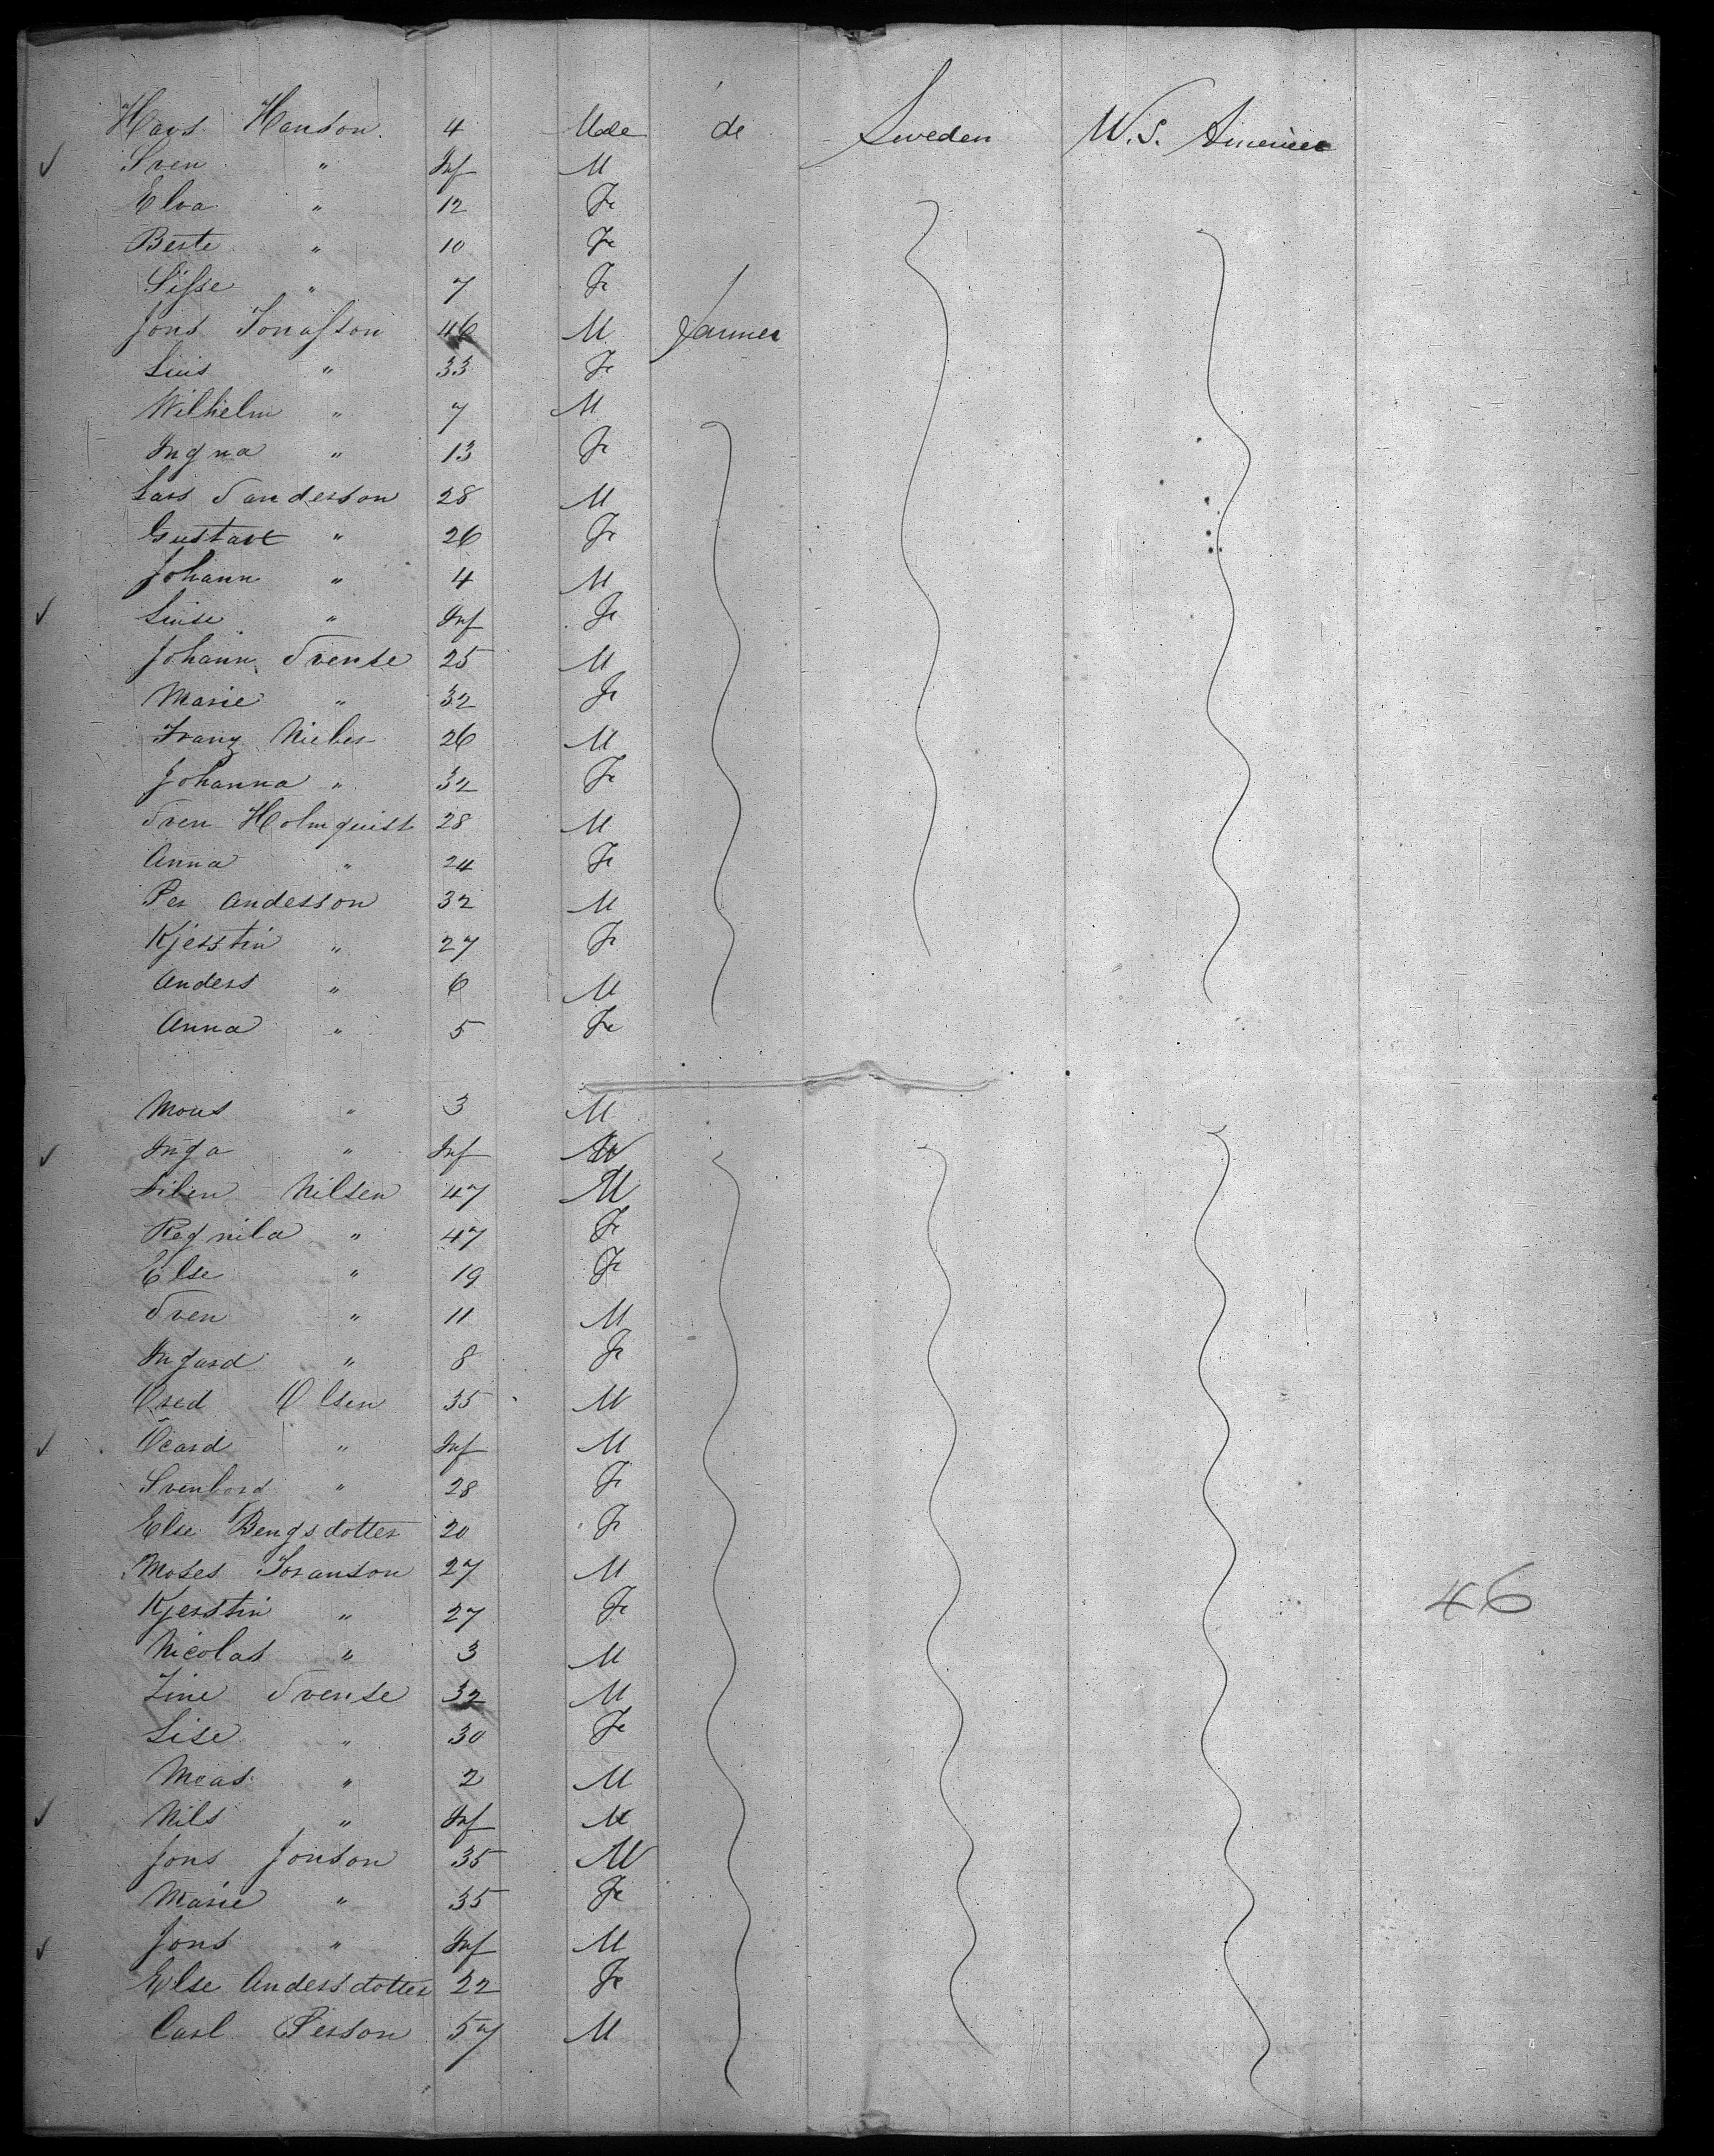 Hans Hanson 4 Male do Sweden U.S. America
✓ Sven " Inf M
Elva " 12 Fe
Beste " 10 Fe
Sisse " 7 Fe
Jons Jonasson 46 M farmer
" 33 Fe
Wilhelm " 7 M
Ingna " 13 Fe
Lars Sandersson 28 M
Gustave " 26 Fe
Johann " 4 M
✓ " Inf Fe
Johann Svense 25 M
Marie " 32 Fe
Franz 26 M
Johanna " 32 Fe
Sven Holmquist 28 M
Anna " 24 Fe
Per Andersson 32 M
Kjerstin " 27 Fe
Anders " 6 M
Anna " 5 Fe
Mons " 3 M
✓ Inga " Inf
Nilsen 47 M
Regnila " 47 Fe
Else " 19 Fe
Sven " 11 M
Ingard " 8 Fe
Olsen 35 M
✓ " Inf M
Svenbord " 28 Fe
Else Bengsdotter 20 Fe
Moses Joranson 27 M
Kjerstin " 27 Fe 46
Nicolas " 3 M
Svense 32 M
Lise " 30 Fe
Moas " 2 M
✓ Nils " Inf M
Jons Jonson 35 M
Marie " 35 Fe
✓ Jons " Inf M
Else Andersdotter 22 Fe
Carl Person 57 M